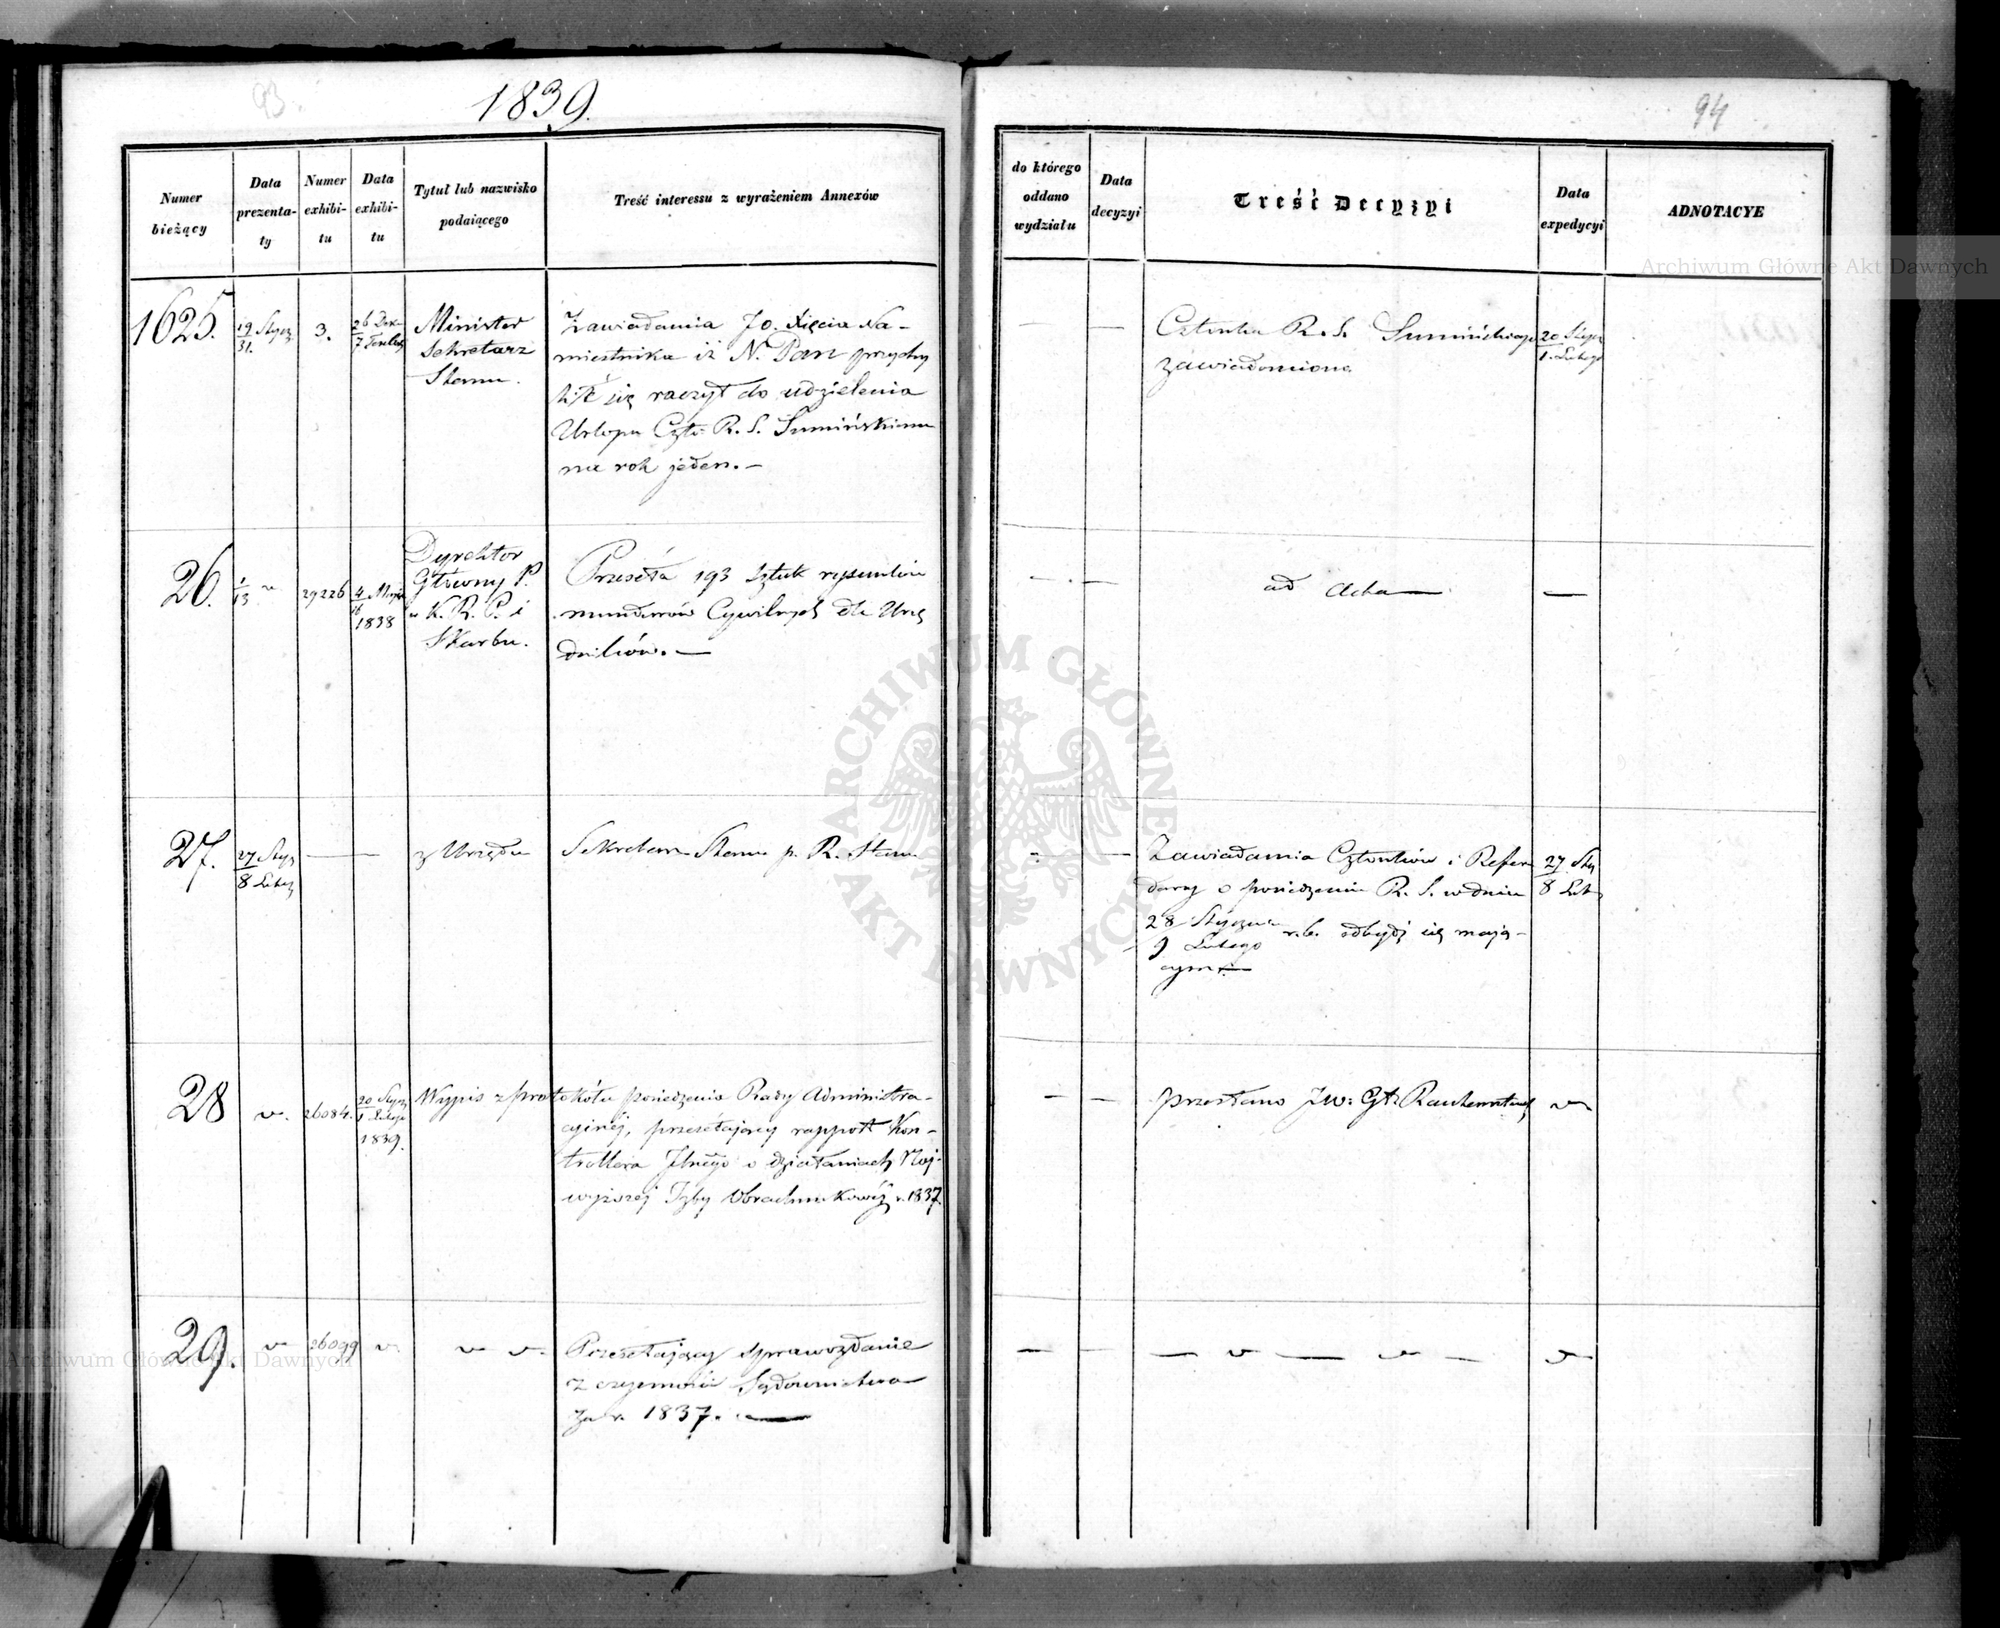 93.
1839.
Numer bieżący
Data prezenta-ty
Numer exhibi-tu
Data exhibi-tu
Tytuł lub nazwisko podaiącego
Treść interessu z wyrażeniem Annexów
1625.
19 Stycz
31.
3.
26 Dec
7
Minister
Sekretarz
Stanu.
Zawiadamia JO. Xięcia Na-
miestnika iż N. Pan przychy
lić się raczył do udzielenia
Urlopu Czło: R. S. Sumińskiemu
na rok jeden.—
26.
1
13
29226
4 Maja
16
1838
Dyrektor
Główny P.
w K. R. P. i
Skarbu.
Przeseła 193 Sztuk rysunków
mundurów Cywilnych dla Urzę
dników.—
27.
27 Stycz
8 Luteg
z Urzędu
Sekretarz Stanu p. R. Stanu
28
v.
26084.
20 Stycz
1 Lutego
1839.
Wypis z protokółu posiedzenia Rady Administra-
cyjnéj, przesełający rapport Kon-
trollera Jlnego o działaniach Naj-
wyższéj Izby Obrachunkowéj r. 1837.
29.
v
26099
v.
v v.
Przesełający sprawozdanie
z czynności Sądownictwa
za r. 1837.—
94
do którego oddano wydziału
Data decyzyi
Treść Decyzyi
Data expedycyi
ADNOTACYE
Członka R. S. Sumińskiego
zawiadomiono.
20 Stycz
1. Lutego
ad Acta—
Zawiadamia Członków i Refern
darzy o posiedzeniu R. S. w dniu
28 Stycznia
9 Lutego
r. b. odbydź się mają-
cym.—
27 Sty
8 Lut
przesłano JW: Gł:
v
— v — v —
v
Archiwum Główne Akt Dawnych
Archiwum Główne Akt Dawnych
ARCHIWUM GŁÓWNE AKT DAWNYCH